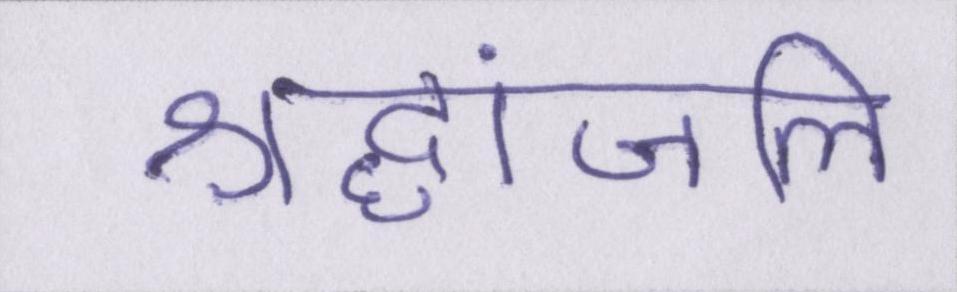 श्रद्धांजलि